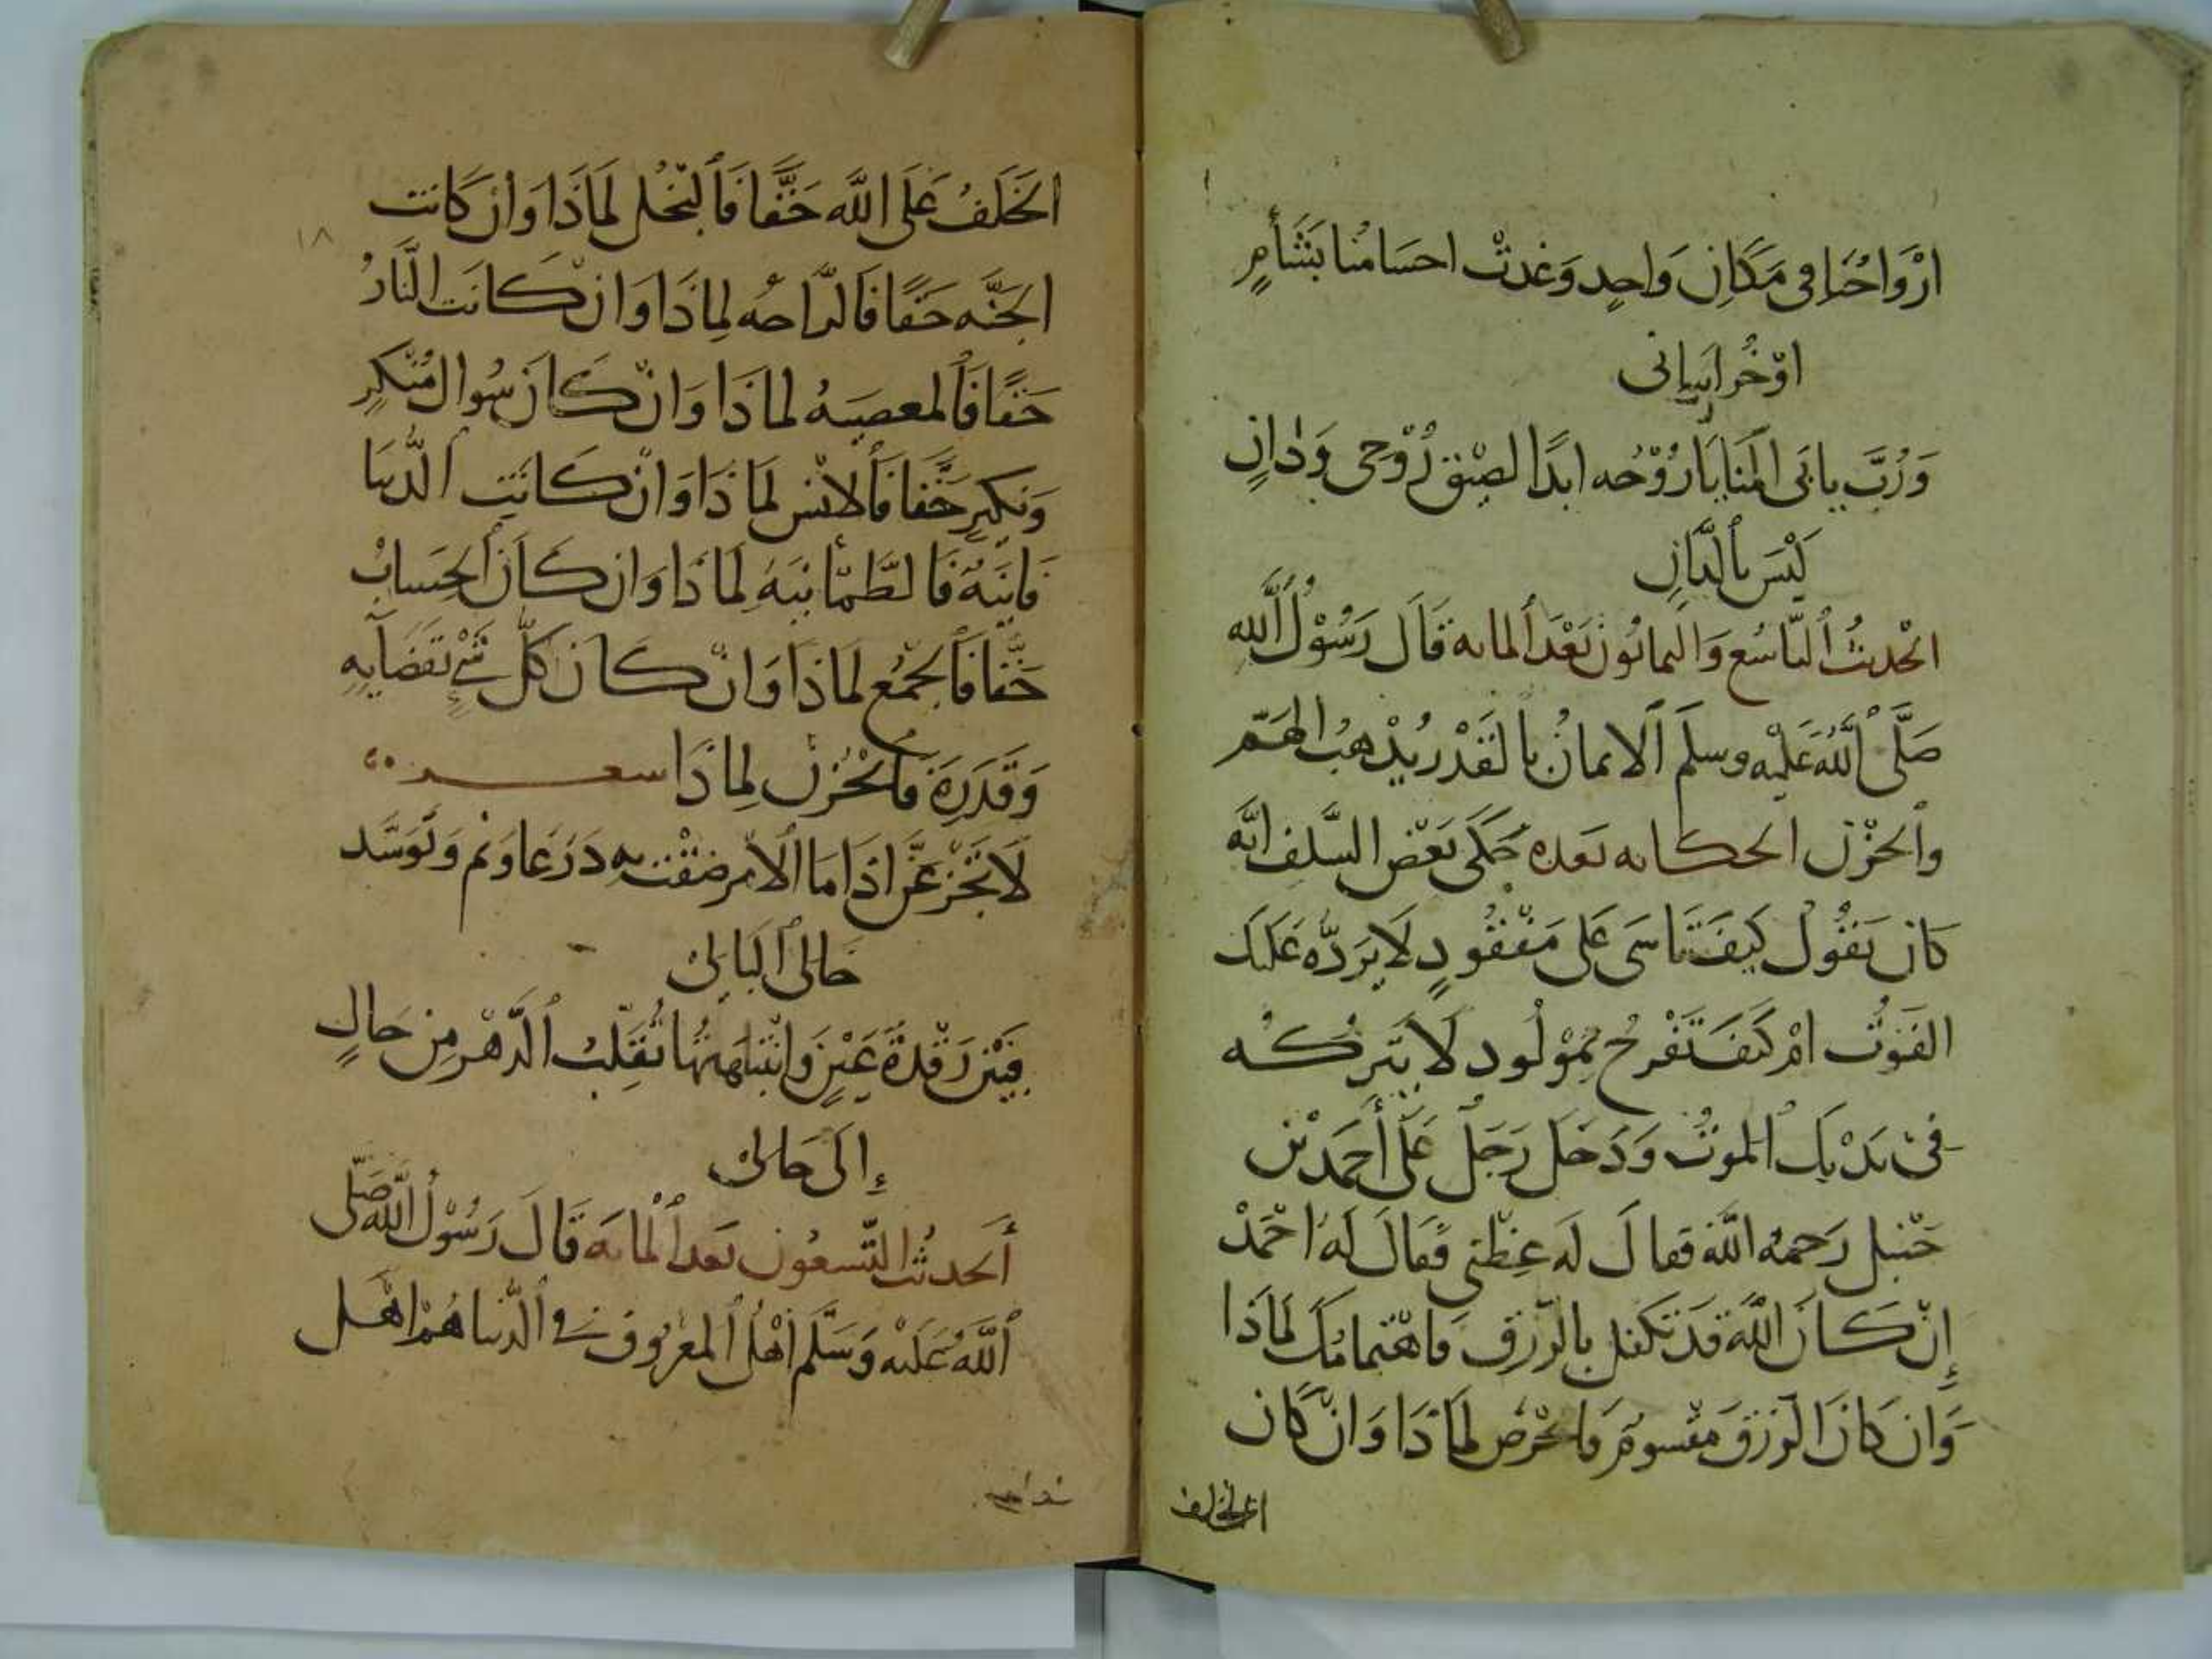 ارْوَاحُنَا فى مَكَانٍ وَاحِدٍ وَغَدتْ احسَامنُا بَشَأمٍ
اوْخُراسَانى
وَرُبَّ يابَى المَنَايَا رُوْحُه ابدًا لصِيْق رُوْحى وَدَانٍ
لَيْسَ بالدَّانِ
الحْديثُ التاسُع وَالثمانُون بَعْدَ المايه قَالَ رَسُوْلُ اللهِ
صَلَّى اللهُ عَلَيْهِ وسلم الايمانُ بالقَدْر يُذْهبُ الهَمّ
والحزْن الحكايه بَعده حَكَى بَعْض السَّلف انَّه
كان يَقُوُل كَيفَ تَاسَى عَلى مَفْقُودٍ لَا يَردّه عَليَك
الفَوْتُ امْ كَيفَ تَفْرحُ بمَوْلُود لَا يَتركُه
فى يَدْيك الموتُ وَدَخل رَجَل عَلى أحمَدْ بْن
حَنْبل رَحمهُ الله فقالَ لَه عِظْنِى فَقالَ لَهُ احْمَدْ
إنْ كانَ الله قَد تكفل بالرّزق فَاهْتمامُكَ لمَاذَا
وَان كانَ الرزق مَقْسومَ فَالحْرص لمَاذَا وَانْ كان
الخلف
الخَلَفُ عَلَى اللَّه حَقًّا فَالبُخْل لمَاذَا وَانْ كَانت
الجَنَّه حَقًا فَالراحه لِمَاذَا وَانْ كَانَت النَّارُ
حَقًا فَالمعصيه لمَاذَا وَانْ كَانَ سُوال مُنْكرٍ
وَنكيرٍ حَقًّا فَالانْس لمَاذَا وَانْ كانَتِ الدُّنيَا
فَانيَةُ فَالطَّمْأنيَنه لمَاذَا وَان كَانَ الحِسابُ
حَقًّا فَالجَمْعُ لمَاذَا وَانْ كان كلّ شَىْءٍ بقَضَايهِ
وَقَدَرِهَ فَالحْزن لِمَاذَا سعر
لَا تَجْزعَنَّ اذَا مَا الامْر ضقْت به دَرعًا وَنم وَتوَسَّد
خَالى البَالِى
فَبَيْن رَقْدةَ عَيْنٍ وَانْتباهَتهَا تُقَلِّبُ الدَّهْر مِن حَالٍ
إلَى حَالى
أَلحديثُ التّسعُون بَعد المَايَه قَالَ رَسُوْل الله صَلّى
اللَّهُ عَلَيْه وَسَلَّم أهْلُ المعْرُوف فى الدّنيا هُمْ اهَل
١٨